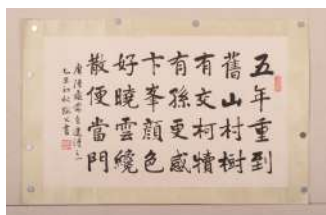 五年重到
舊山村樹
有交柯犢
有孫更感
卞峯顏色
好曉雲纔
散便當門